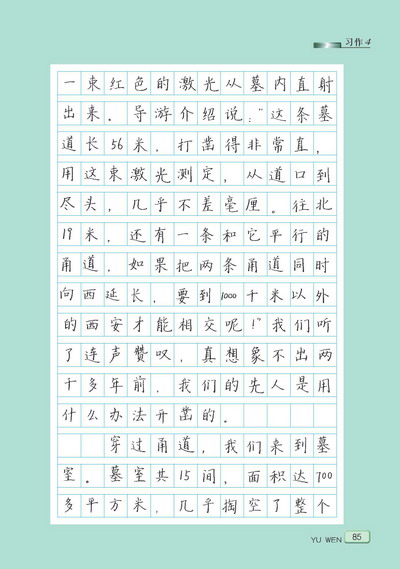 习作4
一束红色的激光从墓内直射
出来。导游介绍说:“这条墓
道长56米,打凿得非常直,
用这束激光测定,从道口到
尽头,几乎不差毫厘。往北
19米,还有一条和它平行的
甬道,如果把两条甬道同时
向西延长,要到1000千米以外
的西安才能相交呢!”我们听
了连声赞叹,真想象不出两
千多年前,我们的先人是用
什么办法开凿的。
穿过甬道,我们来到墓
室。墓室共15间,面积达700
多平方米,几乎掏空了整个
YU WEN 85